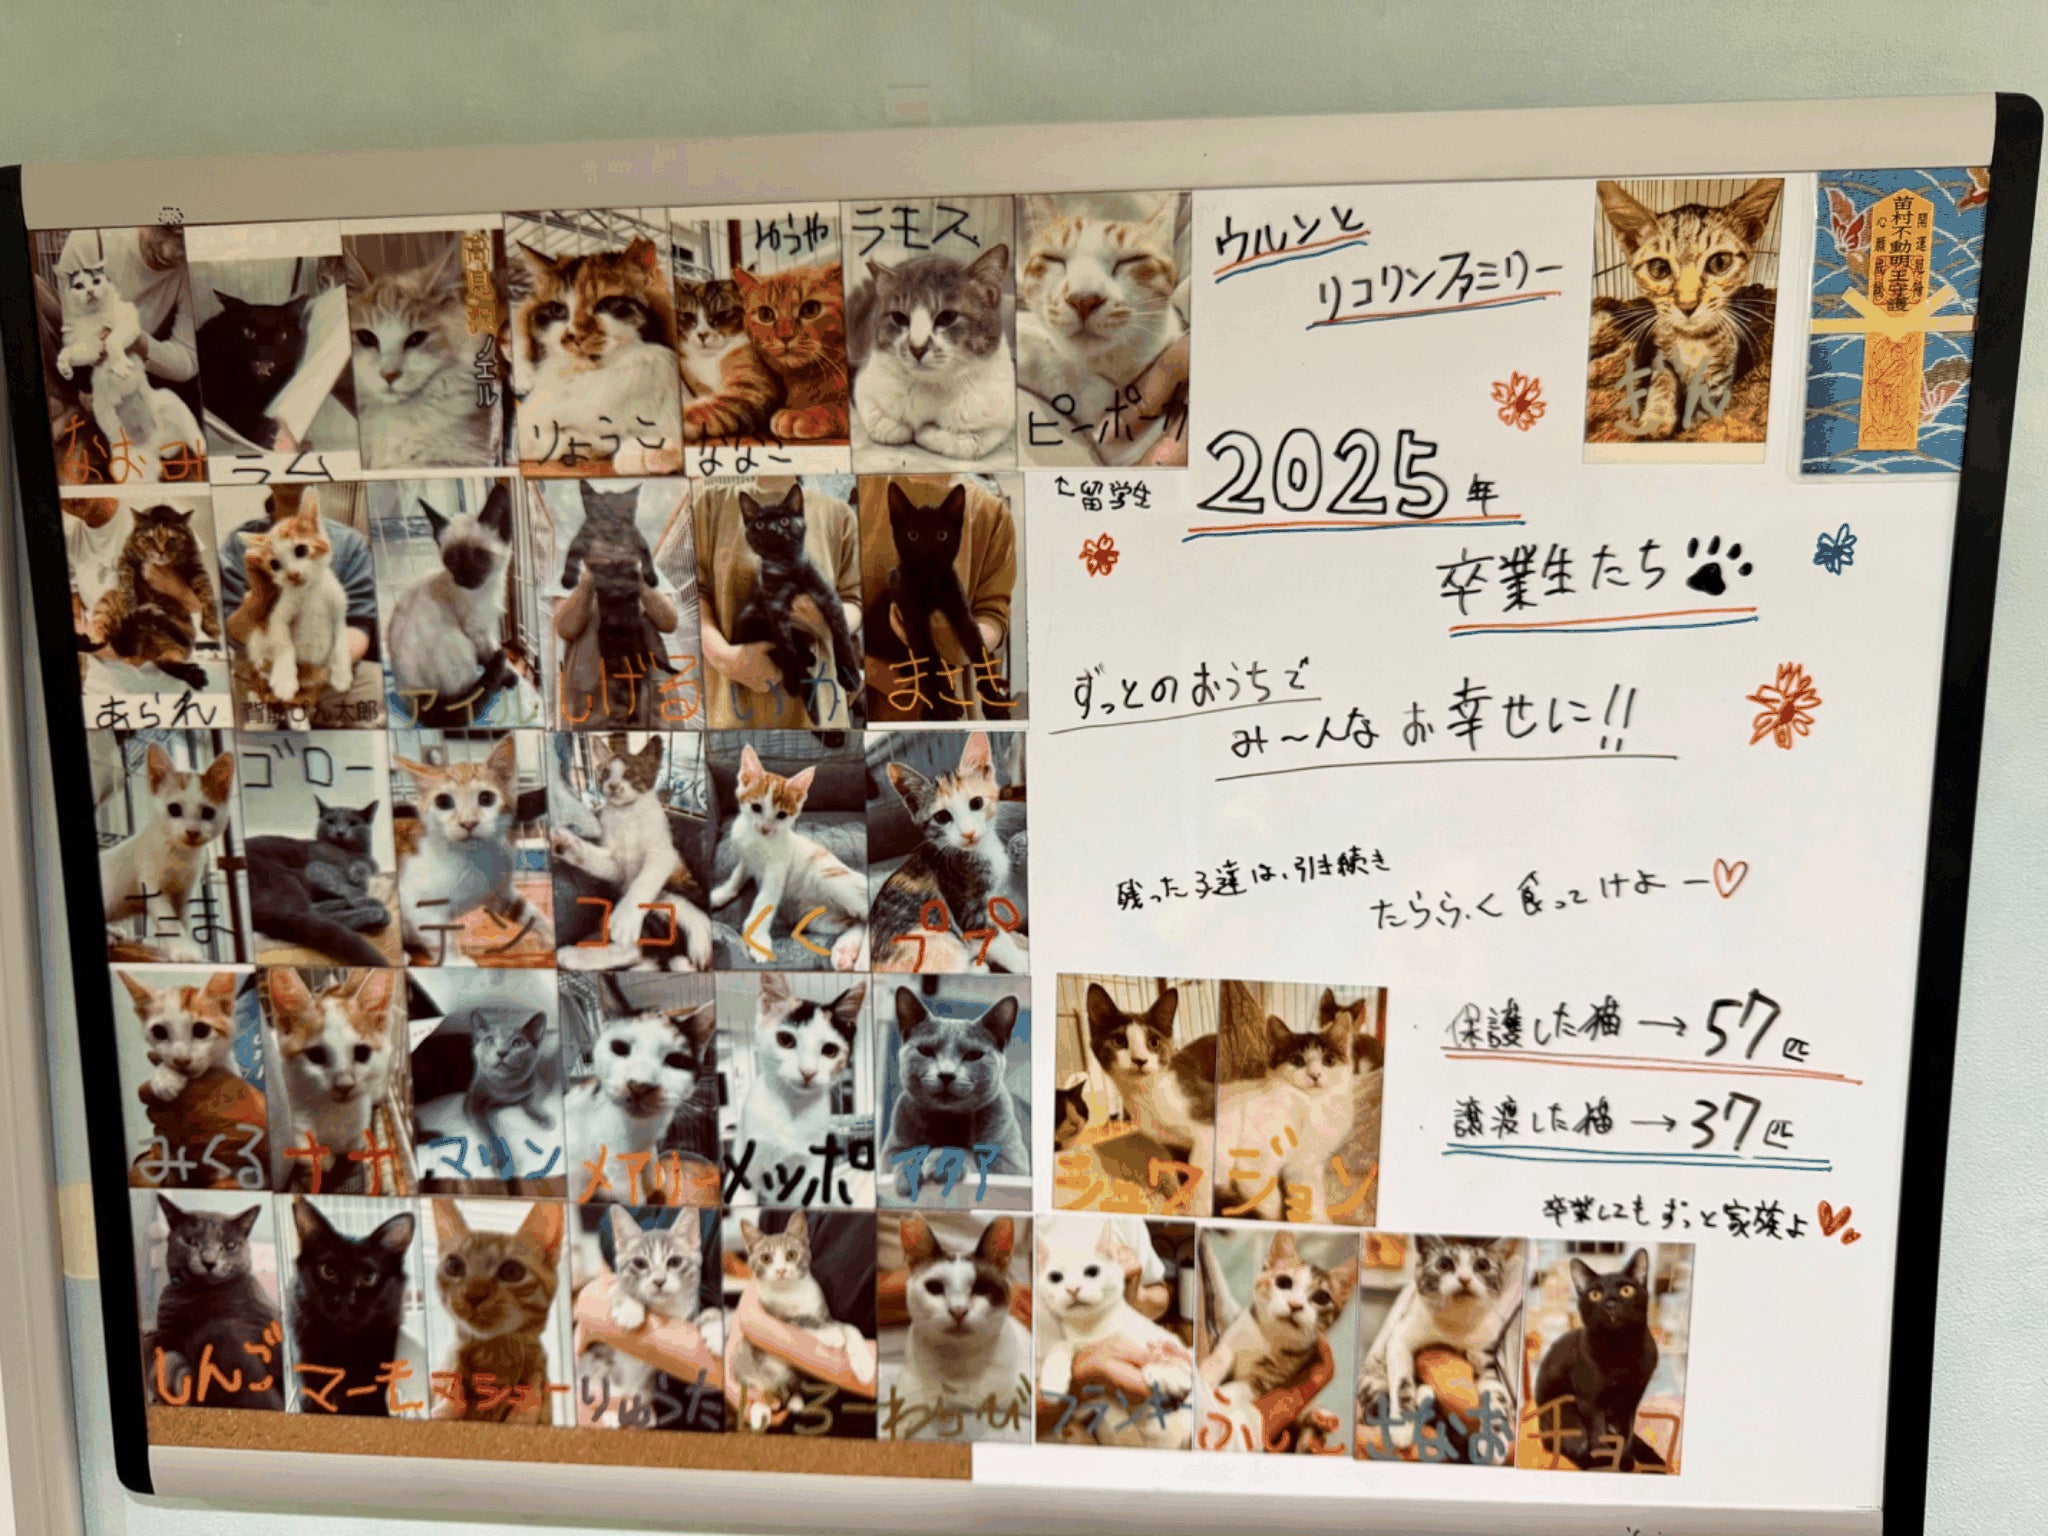 なおみ
ラム
高見沢ノエル
りょうこ
ゆうや
ななこ
ラモス
ピーポー
↑留学生
ウルンと
リコリンファミリー
2025年
卒業生たち
苗村不動明王守護
開運厄除
心願成就
あられ
背筋ぴん太郎
アイル
しげる
いか
まさき
ずっとのおうちで
み〜んなお幸せに!!
たま
ゴロー
テン
ココ
くく
ププ
残った子達は、引き続き
たらふく食ってけよー♡
みくる
ナナ
マリン
メアリー
メッポ
アクア
シュワ
ジョン
保護した猫→57匹
譲渡した猫→37匹
卒業してもずっと家族よ
しんご
マーモ
マシュー
りゅうた
じろー
わらび
フランキー
ふじこ
さなお
チョコ